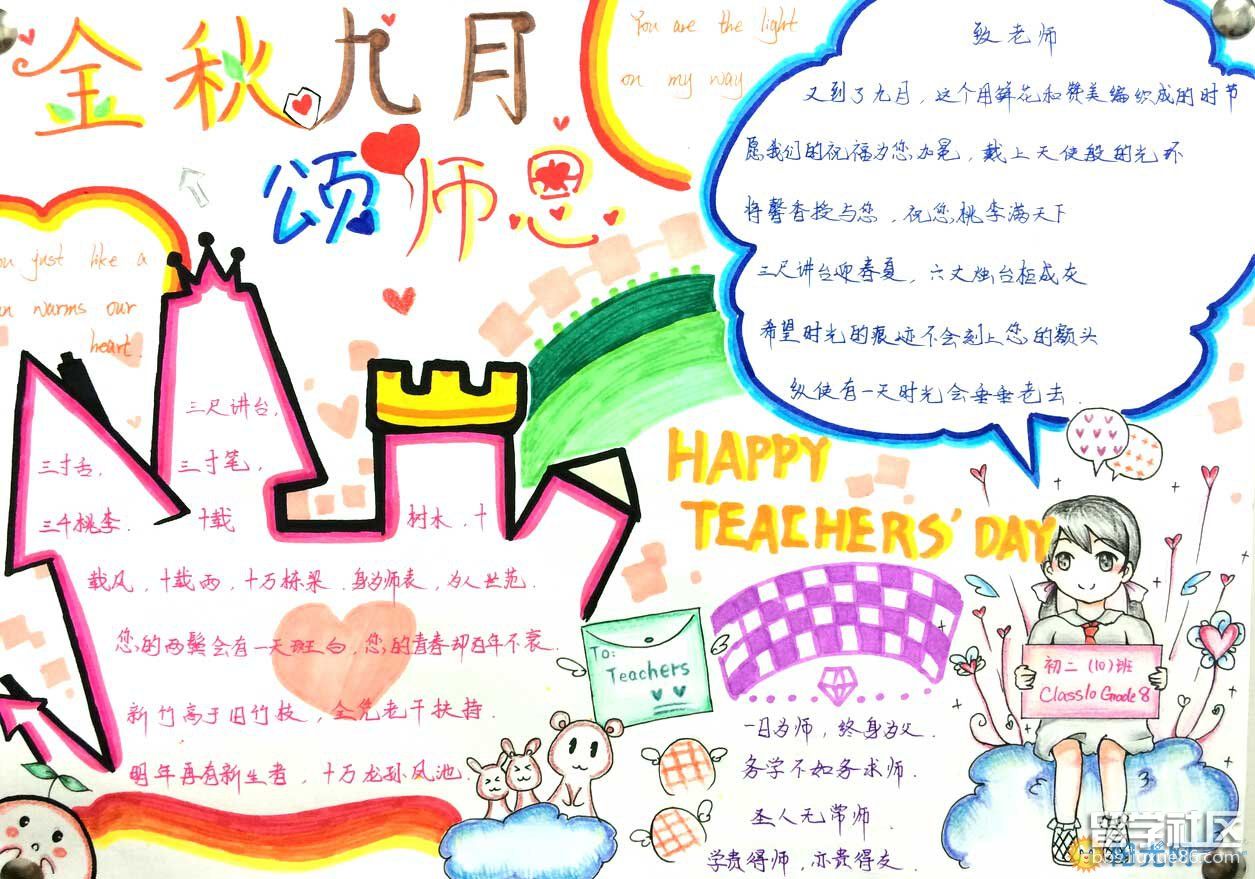 金秋九月
颂师恩
You are the light
on my way
致老师
又到了九月，这个用鲜花和赞美编织成的时节
愿我们的祝福为您加冕，戴上天使般的光环
将馨香授与您，祝您桃李满天下
三尺讲台迎春夏，六丈烛台柜成灰
希望时光的痕迹不会刻上您的额头
纵使有一天时光会垂垂老去．
ou just like a
n warms our
heart.
三尺讲台，
三寸舌，三寸笔，
三千桃李．十载树木，十
载风，十载雨，十万栋梁．身为师表，为人世范．
您的两鬓会有一天斑白，您的青春却百年不衰．
新竹高于旧竹枝，全凭老干扶持．
明年再有新生者，十万龙孙凤池．
HAPPY
TEACHERS' DAY
To:
Teachers
初二（10）班
Class10 Grade8
一日为师，终身为父．
务学不如务求师．
圣人无常师．
学贵得师，亦贵得友．
留学社区
bbs.liuxue86.com